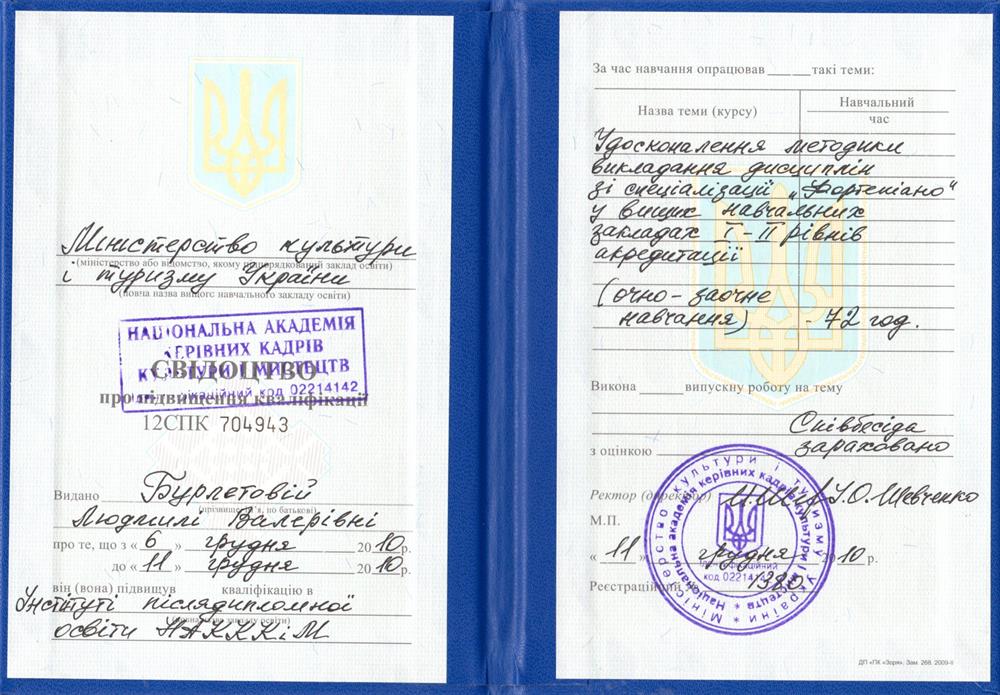 Міністерство культури
(міністерство або відомство, якому підпорядкований заклад освіти)
і туризму України
(повна назва вищого навчального закладу освіти)
НАЦІОНАЛЬНА АКАДЕМІЯ
КЕРІВНИХ КАДРІВ
КУЛЬТУРИ І МИСТЕЦТВ
ідентифікаційний код 02214142
СВІДОЦТВО
про підвищення кваліфікації
12СПК 704943
Видано Бурлетовій
(прізвище, ім'я, по батькові)
Людмилі Валерівні
про те, що з « 6 » грудня 20 10 р.
до « 11 » грудня 20 10 р.
він (вона) підвищув кваліфікацію в
Інституті післядипломної
освіти НАКККіМ
За час навчання опрацював ____ такі теми:
Назва теми (курсу)
Навчальний
час
Удосконалення методики
викладання дисциплін
зі спеціалізації „Фортепіано"
у вищих навчальних
закладах І-ІІ рівнів
акредитації
(очно-заочне
навчання) - 72 год.
Викона ____ випускну роботу на тему
Співбесіда
з оцінкою зараховано
Ректор (директор) І.О. Шевченко
М.П.
« 11 » грудня 20 10 р.
Реєстраційний 1380
Міністерство культури і туризму України *
Національна академія керівних кадрів культури і мистецтв *
Ідентифікаційний
код 02214142
ДП «ПК «Зоря». Зам. 268. 2009-ІІ